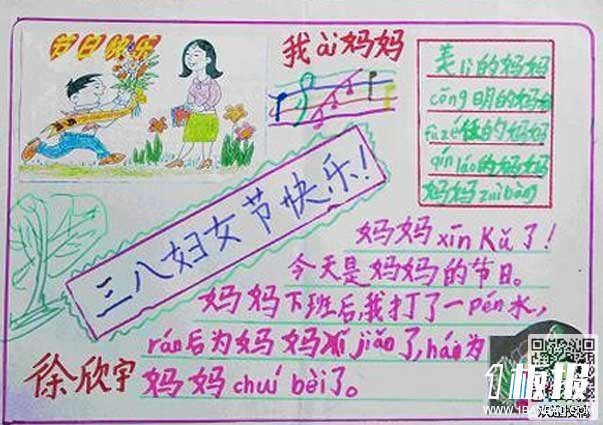 节日快乐
我ài妈妈
美lì的妈妈
cōng明的妈妈
fù zé任的妈妈
qín láo的妈妈
妈妈zuì bàng
三八妇女节快乐！
妈妈xīn Kǔ了！
今天是妈妈的节日。
妈妈下班后,我打了一pén水,
rán后为妈妈xǐ jiǎo了,hái为
妈妈chuí bèi了。
徐欣宇
1板报
WWW.1BANBAO.COM
欢迎投稿